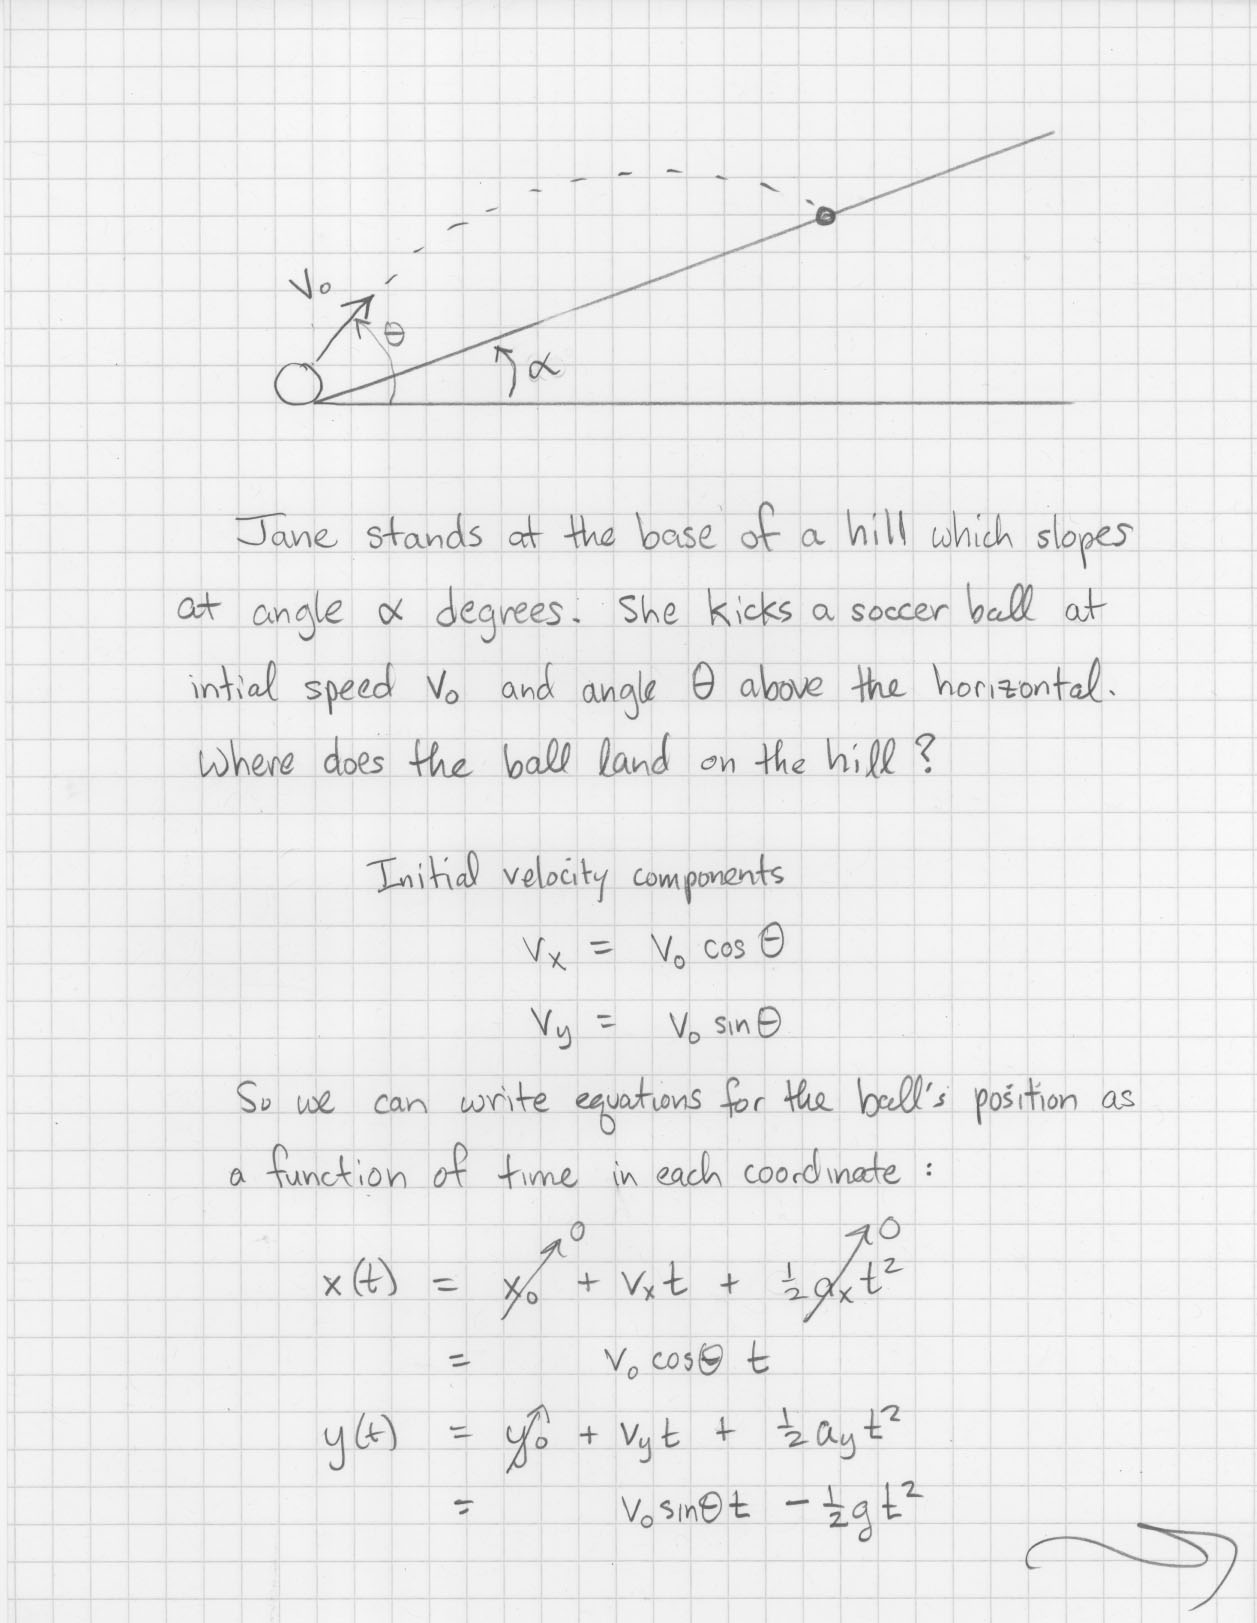 V₀
θ
α
Jane stands at the base of a hill which slopes
at angle α degrees. She kicks a soccer ball at
intial speed v₀ and angle θ above the horizontal.
Where does the ball land on the hill?
Initial velocity components
Vx = V₀ cos θ
Vy = V₀ sin θ
So we can write equations for the ball's position as
a function of time in each coordinate:
0 0
x(t) = x₀ + Vx t + ½ ax t²
= V₀ cosθ t
y(t) = y₀ + Vy t + ½ ay t²
= V₀ sinθ t - ½ g t²